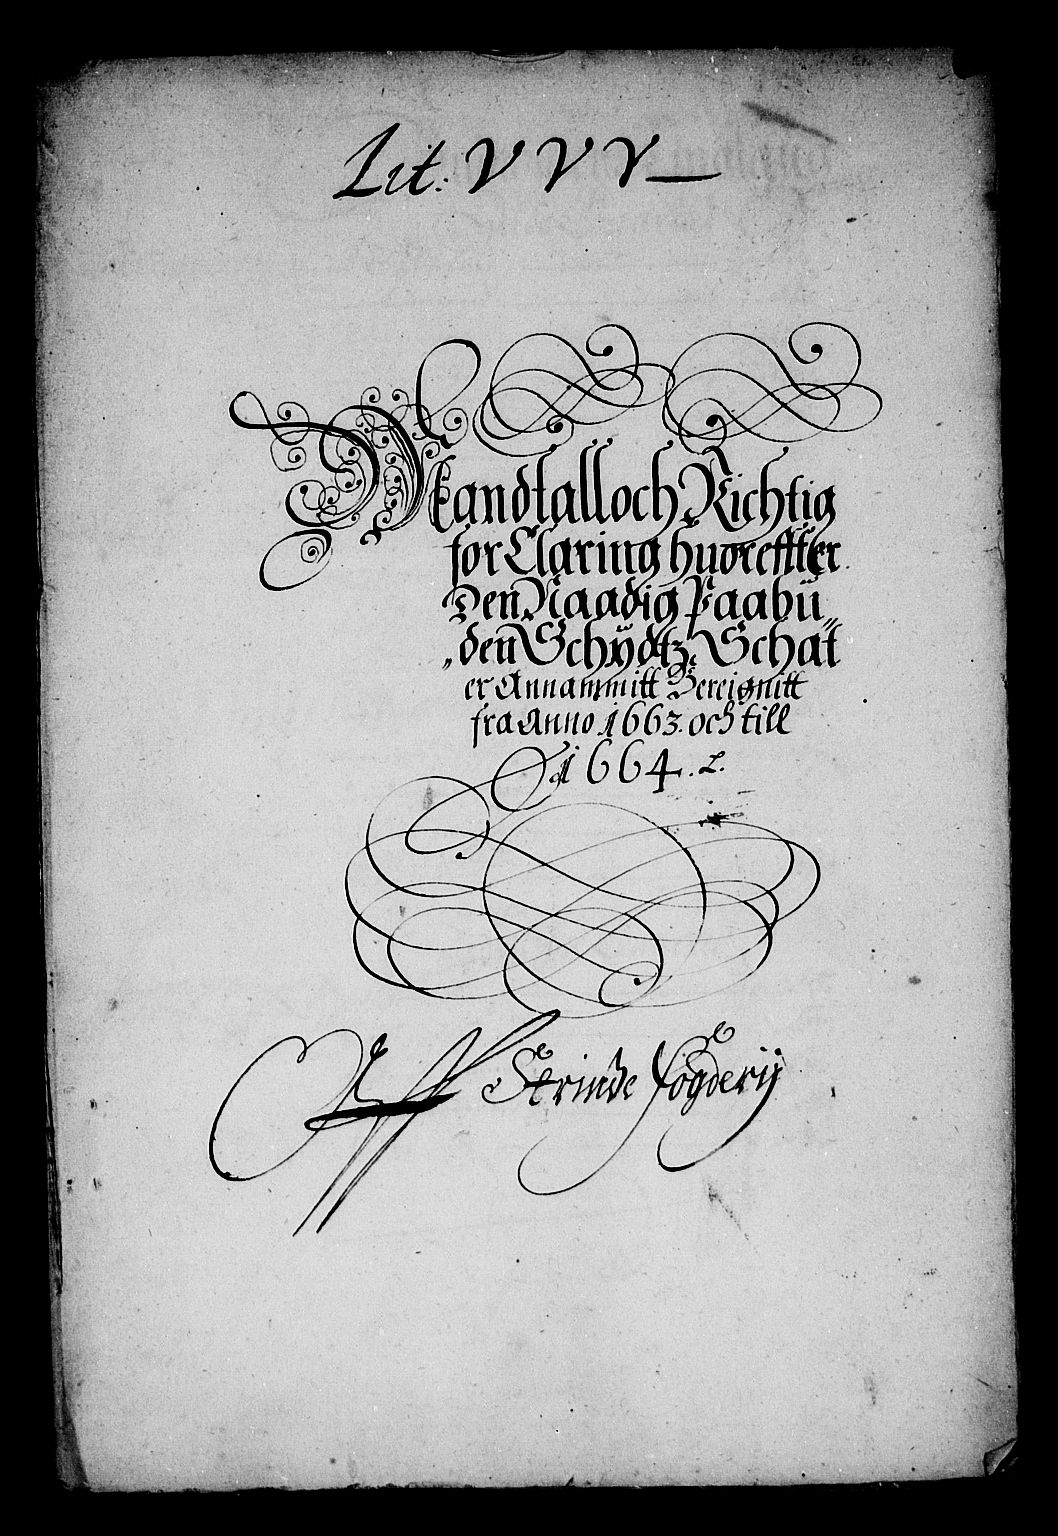 Lit: VVV
Mandtall och Richtig
for Claring huoreffter
Den Naadig Paabü„
„den Schÿdtz. Schat
er Annammitt Bereignitt
fra Anno 1663. och till
1664. L.
Aff Strinde fögderij